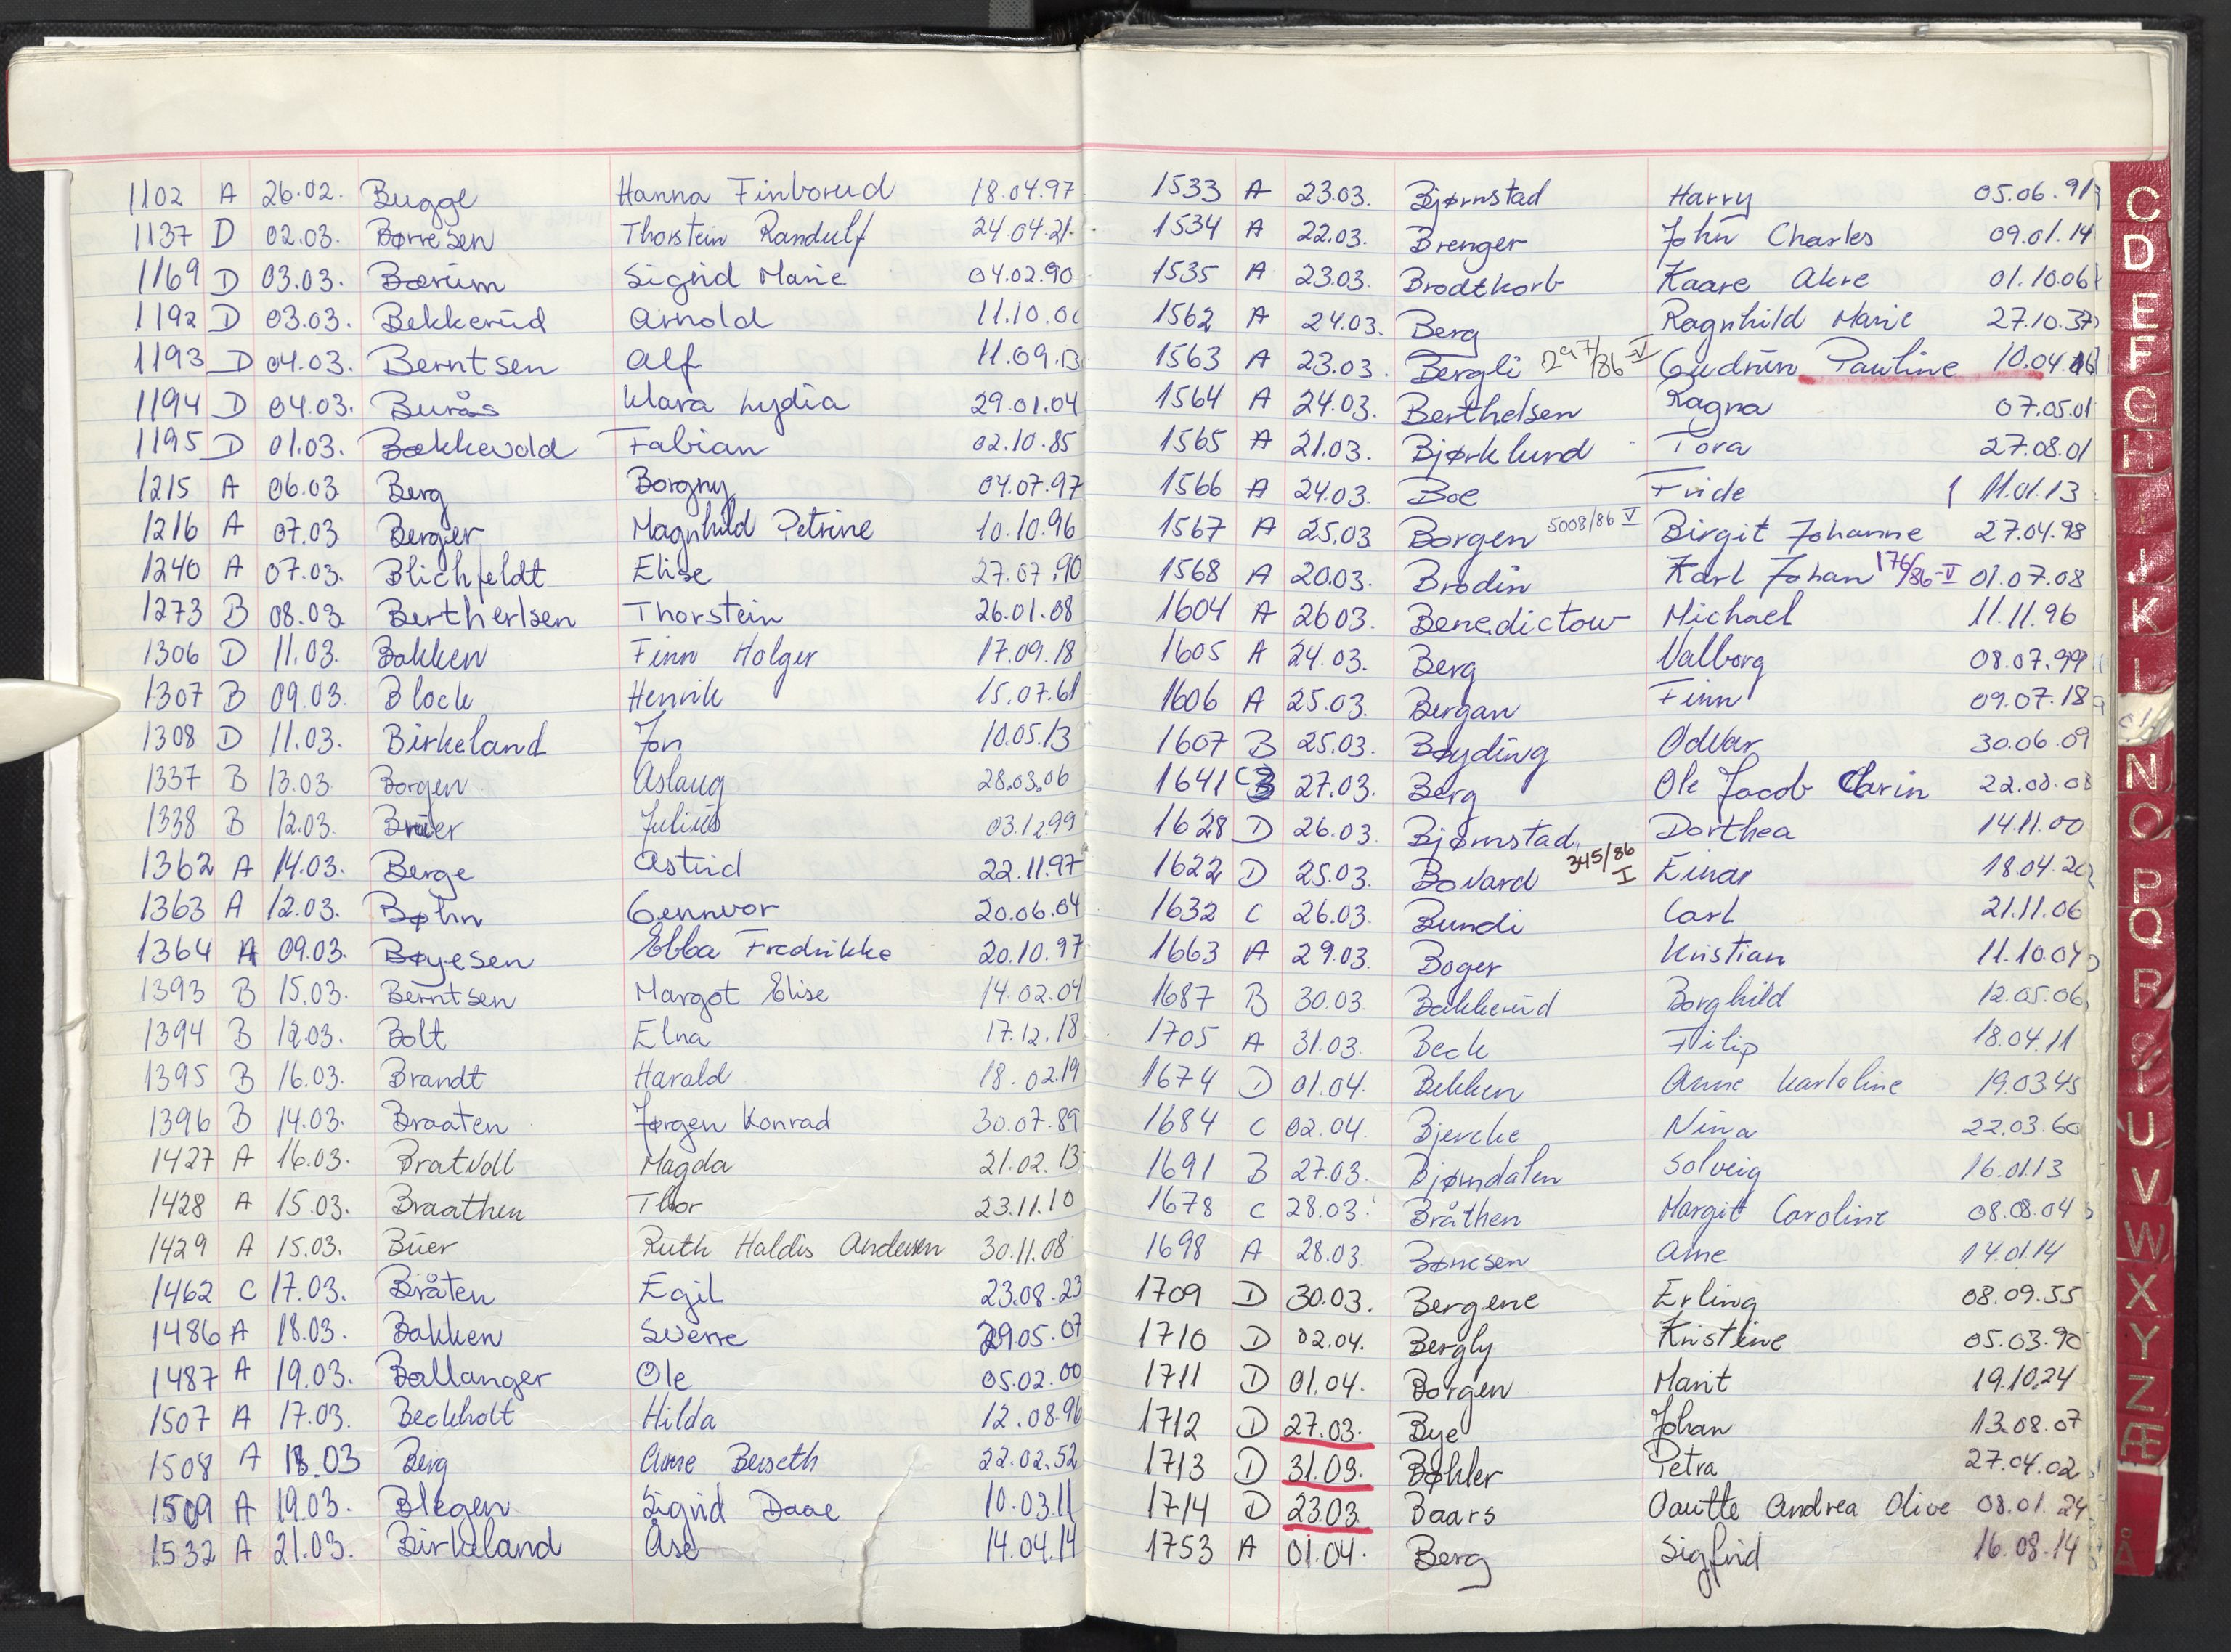 1102 A 26.02. Bugge Hanna Finborud 18.04.97
1137 D 02.03. Børresen Thorstein Randulf 24.04.21
1169 D 03.03. Bærum Sigrid Marie 04.02.90
1192 D 03.03. Bekkerud Arnold 11.10.0
1193 D 04.03. Berntsen Alf 11.09.13
1194 D 04.03. Burås Klara Lydia 29.01.04
1195 D 01.03. Bækkevold Fabian 02.10.85
1215 A 06.03 Berg Borgny 04.07.97
1216 A 07.03 Berger Magnhild Petrine 10.10.96
1240 A 07.03. Blichfeldt Elise 27.07.90
1273 B 08.03 Bertherlsen Thorstein 26.01.08
1306 D 11.03. Bakken Finn Holger 17.09.18
1307 B 09.03. Block Henrik 15.07.61
1308 D 11.03. Birkeland Jon 10.05.13
1337 B 13.03. Borgen Aslaug 28.03.06
1338 B 12.03. Julius 03.12.99
1362 A 14.03. Berge Astrid 22.11.97
1363 A 12.03. Bøhn Gennvor 20.06.04
1364 A 09.03. Bøyesen Ebba Fredrikke 20.10.97
1393 B 15.03. Berntsen Margot Elise 14.02.04
1394 B 12.03. Bolt Elna 17.12.18
1395 B 16.03. Brandt Harald 18.02.19
1396 B 14.03. Braaten Jørgen Konrad 30.07.89
1427 A 16.03. Bratvoll Magda 21.02.13
1428 A 15.03. Braathen Thor 23.11.10
1429 A 15.03. Buer Ruth Haldis Andersen 30.11.08
1462 C 17.03. Bråten Egil 23.08.23
1486 A 18.03. Bakken Sverre 29.05.07
1487 A 19.03. Ballanger Ole 05.02.00
1507 A 17.03. Beckholt Hilda 12.08.96
1508 A 18.03 Berg Anne Berseth 22.02.52
1509 A 19.03. Blegen Sigrid Daae 10.03.11
1532 A 21.03. Birkeland Åse 14.04.14
1533 A 23.03. Bjørnstad Harry 05.06.91
1534 A 22.03. Brenger John Charles 09.01.14
1535 A 23.03. Brodtkorb Kaare Akre 01.10.06
1562 A 24.03. Berg Ragnhild Marie 27.10.37
1563 A 23.03. Bergli 297/86-V Gudrun Pauline 10.04.16
1564 A 24.03. Berthelsen Ragna 07.05.01
1565 A 21.03. Bjørklund Tora 27.08.01
1566 A 24.03. Boe Fride 11.01.13
1567 A 25.03 Borgen 5008/86 V Birgit Johanne 27.04.98
1568 A 20.03. Brodin Karl Johan 176/86-V 01.07.08
1604 A 26 03. Benedictow Michael 11.11.96
1605 A 24.03. Berg Valborg 08.07.99
1606 A 25.03. Bergan Finn 09.07.18
1607 B 25.03. Bøyding Odvar 30.06.09
1641 C 27.03. Berg Ole Jacob Clarin 22.08.08
1628 D 26.03. Bjørnstad Dorthea 14.11.00
1622 D 25.03. Bovard 345/86 I Einar 18.04.20
1632 C 26.03. Bundi Carl 21.11.06
1663 A 29.03. Boger Kristian 11.10.04
1687 B 30.03. Bakkerud Borghild 12.05.06
1705 A 31.03. Beck Filip 18.04.11
1674 D 01.04. Bekken Anne Karloline 19.03.45
1684 C 02.04. Bjercke Nina 22.03.60
1691 B 27.03. Bjørndalen Solveig 16.01.13
1678 C 28.03. Bråthen Margit Caroline 08.08.04
1698 A 28.03. Børresen Arne 14.01.14
1709 D 30.03. Bergene Erling 08.09.55
1710 D 02.04. Bergly Kristine 05.03.90
1711 D 01.04. Borgen Marit 19.10.24
1712 D 27.03. Bye Johan 13.08.07
1713 D 31.03. Bøhler Petra 27.04.02
1714 D 23.03. Baars Andrea Olive 08.01.24
1753 A 01.04. Berg Sigfrid 16.08.14
C
D
E
F
G
H
I
J
K
L
N
O
P
Q
R
S
T
U
V
W
X
Y
Z
Æ
Å